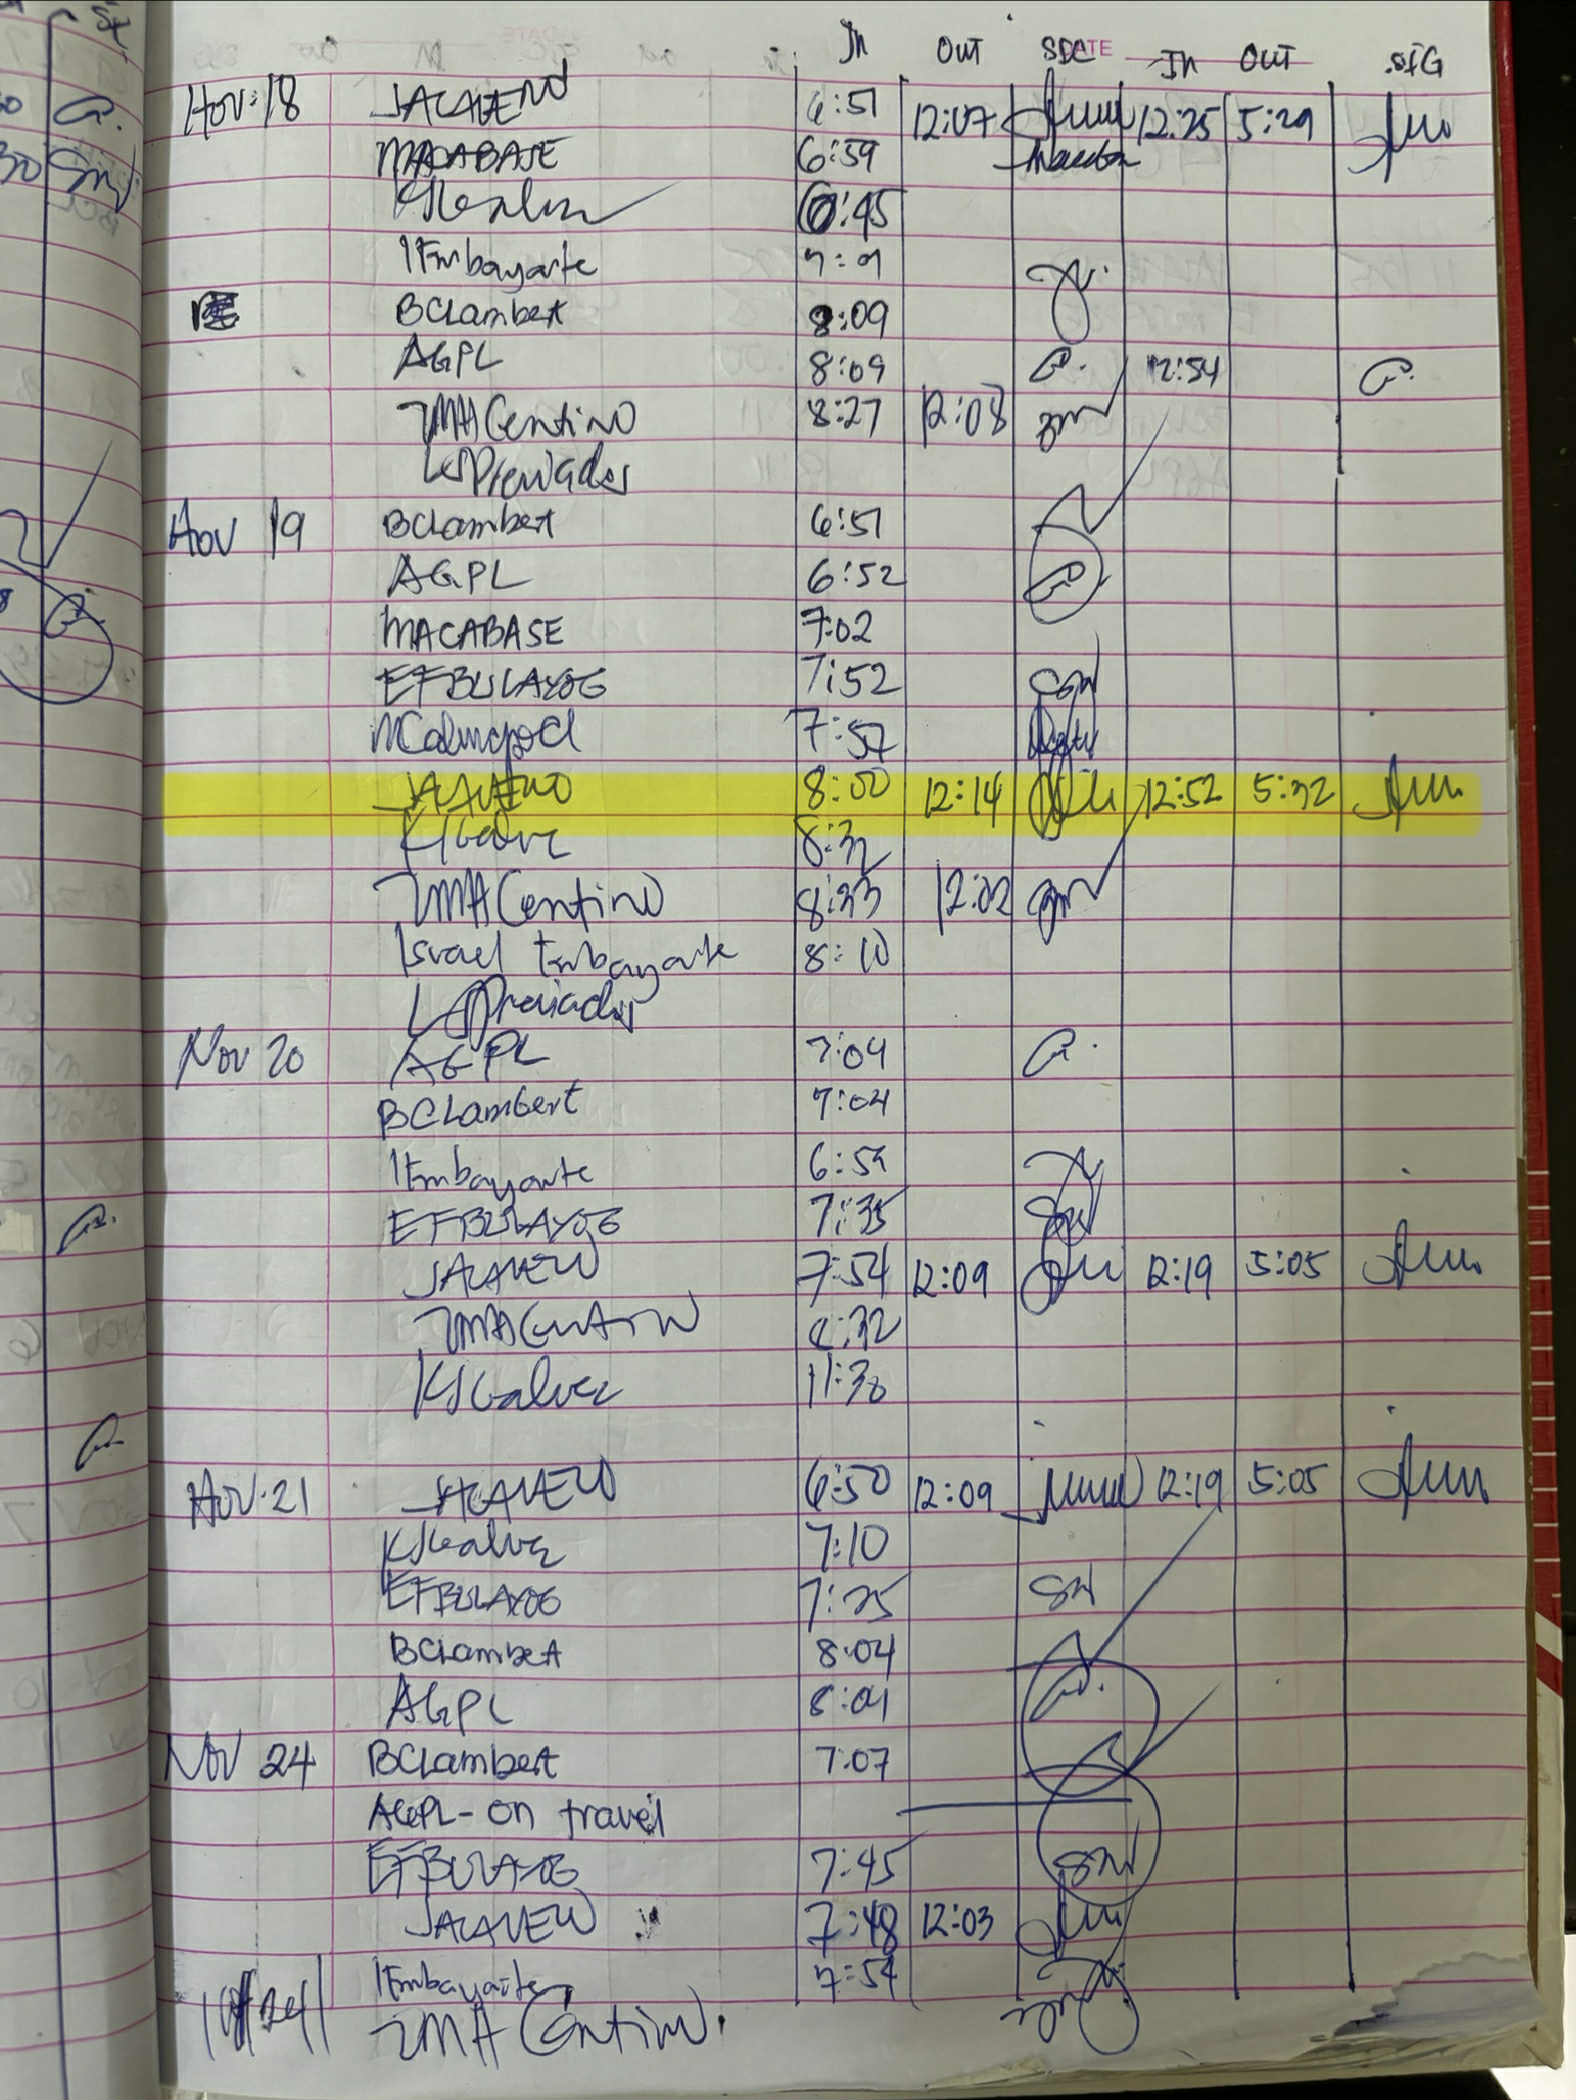 In OUT SIG In OUT SIG
Nov. 18 JACAVENO 6:51 12:07 12:25 5:29
MACABASE 6:59
6:45
IEmbayarte 7:01
BCLambert 8:09
AGPL 8:09 12:54
JMACentino 8:27 12:08
LSPreviados
Nov 19 BCLambert 6:51
AGPL 6:52
MACABASE 7:02
EFBULAYOG 7:52
7:57
JACAVENO 8:00 12:14 12:52 5:32
KJGalvez 8:32
JMACentino 8:33 12:02
Israel Embayarte 8:10
LSPreviados
Nov 20 AGPL 7:04
BCLambert 7:04
IEmbayarte 6:59
EFBULAYOG 7:35
JACAVENO 7:54 12:09 12:19 5:05
JMACentino 8:32
KJGalvez 11:30
Nov. 21 JACAVENO 6:50 12:09 12:19 5:05
KJGalvez 7:10
EFBULAYOG 7:25
BCLambert 8:04
AGPL 8:01
Nov 24 BCLambert 7:07
AGPL - on travel
EFBULAYOG 7:45
JACAVENO 7:48 12:03
IEmbayarte 7:54
JMACentino